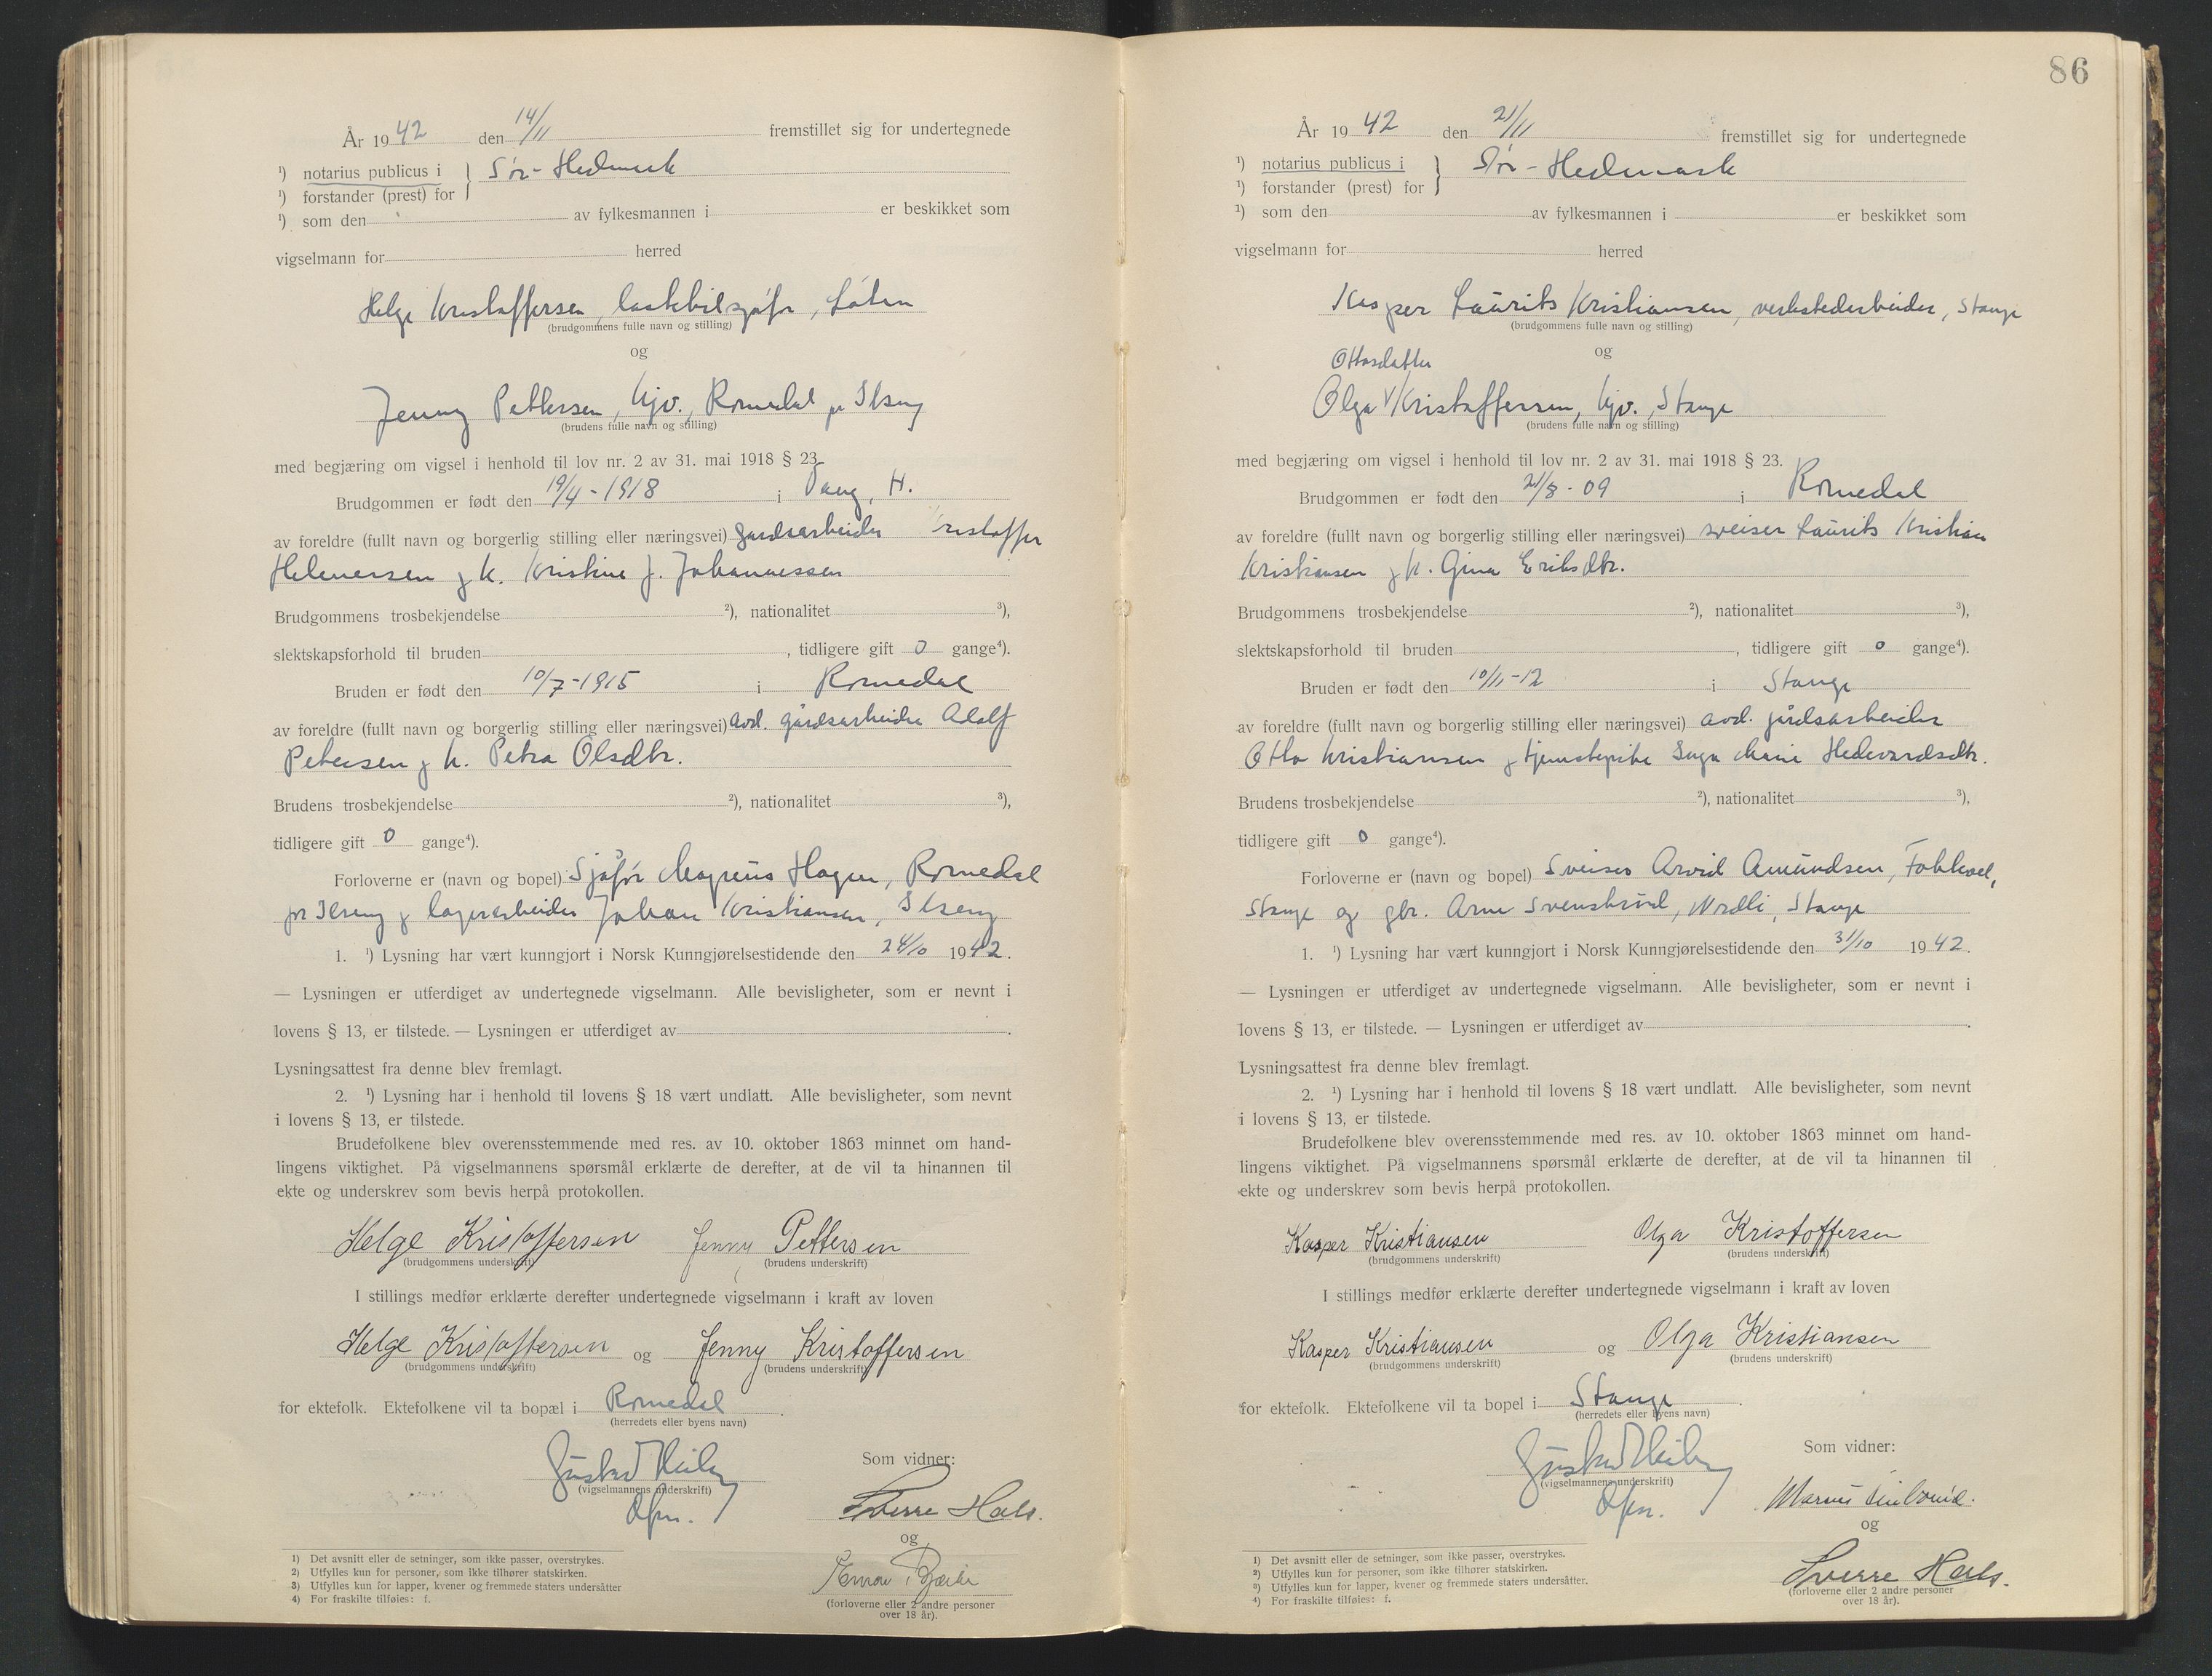 År 19 42 den 14/11 fremstillet sig for undertegnede
¹) notarius publicus i } Sør-Hedmark
¹) forstander (prest) for
¹) som den av fylkesmannen i er beskikket som
vigselmann for herred
Helge Kristoffersen, lastebilsjåfør, Løten
(brudgommens fulle navn og stilling)
og
Jenny Pettersen, hjv., Romedal pr Ilseng
(brudens fulle navn og stilling)
med begjæring om vigsel i henhold til lov nr. 2 av 31. mai 1918 § 23.
Brudgommen er født den 19/4 - 1918 i Vang, H.
av foreldre (fullt navn og borgerlig stilling eller næringsvei) gårdsarbeider Kristoffer
Helmersen og h. Kristine J. Johannessen
Brudgommens trosbekjendelse ²), nationalitet ³),
slektskapsforhold til bruden , tidligere gift 0 gange⁴).
Bruden er født den 10/7-1915 i Romedal
av foreldre (fullt navn og borgerlig stilling eller næringsvei) avd. gårdsarbeider Adolf
Petersen og h. Petra Olsdtr.
Brudens trosbekjendelse ²), nationalitet ³),
tidligere gift 0 gange⁴).
Forloverne er (navn og bopel) Sjåfør Magnus Hagen, Romedal
pr Ilseng og lagerarbeider Johan Kristiansen, Ilseng
1. ¹) Lysning har vært kunngjort i Norsk Kunngjørelsestidende den 24/10 1942.
— Lysningen er utferdiget av undertegnede vigselmann. Alle bevisligheter, som er nevnt i
lovens § 13, er tilstede. — Lysningen er utferdiget av .
Lysningsattest fra denne blev fremlagt.
2. ¹) Lysning har i henhold til lovens § 18 vært undlatt. Alle bevisligheter, som nevnt
i lovens § 13, er tilstede.
Brudefolkene blev overensstemmende med res. av 10. oktober 1863 minnet om hand-
lingens viktighet. På vigselmannens spørsmål erklærte de derefter, at de vil ta hinannen til
ekte og underskrev som bevis herpå protokollen.
Helge Kristoffersen Jenny Pettersen
(brudgommens underskrift) (brudens underskrift)
I stillings medfør erklærte derefter undertegnede vigselmann i kraft av loven
Helge Kristoffersen og Jenny Kristoffersen
(brudgommens underskrift) (brudens underskrift)
for ektefolk. Ektefolkene vil ta bopæl i Romedal .
(herredets eller byens navn)
Som vidner:
(vigselmannens underskrift)
Sverre Hals.
og
(forloverne eller 2 andre personer
over 18 år).
1) Det avsnitt eller de setninger, som ikke passer, overstrykes.
2) Utfylles kun for personer, som ikke tilhører statskirken.
3) Utfylles kun for lapper, kvener og fremmede staters undersåtter
4) For fraskilte tilføies: f.
86
År 19 42 den 21/11 fremstillet sig for undertegnede
¹) notarius publicus i } Sør-Hedmark
¹) forstander (prest) for
¹) som den av fylkesmannen i er beskikket som
vigselmann for herred
Kasper Laurits Kristiansen, verkstedarbeider, Stange
(brudgommens fulle navn og stilling)
og
Ottosdatter
Olga V Kristoffersen, hjv., Stange
(brudens fulle navn og stilling)
med begjæring om vigsel i henhold til lov nr. 2 av 31. mai 1918 § 23.
Brudgommen er født den 21/8 - 09 i Romedal
av foreldre (fullt navn og borgerlig stilling eller næringsvei) sveiser Laurits Kristian
Kristiansen og h. Gina Eriksdtr.
Brudgommens trosbekjendelse ²), nationalitet ³),
slektskapsforhold til bruden , tidligere gift 0 gange⁴).
Bruden er født den 10/11-12 i Stange
av foreldre (fullt navn og borgerlig stilling eller næringsvei) avd. gårdsarbeider
Otto Kristiansen og tjenestepike Inga Marie Hedevardsdtr.
Brudens trosbekjendelse ²), nationalitet ³),
tidligere gift 0 gange⁴).
Forloverne er (navn og bopel) Sveiser Arvid Amundsen, Fokhoel,
Stange og gbr. Arne Svenskrud, Nordli, Stange
1. ¹) Lysning har vært kunngjort i Norsk Kunngjørelsestidende den 31/10 1942.
— Lysningen er utferdiget av undertegnede vigselmann. Alle bevisligheter, som er nevnt i
lovens § 13, er tilstede. — Lysningen er utferdiget av .
Lysningsattest fra denne blev fremlagt.
2. ¹) Lysning har i henhold til lovens § 18 vært undlatt. Alle bevisligheter, som nevnt
i lovens § 13, er tilstede.
Brudefolkene blev overensstemmende med res. av 10. oktober 1863 minnet om hand-
lingens viktighet. På vigselmannens spørsmål erklærte de derefter, at de vil ta hinannen til
ekte og underskrev som bevis herpå protokollen.
Kasper Kristiansen Olga Kristoffersen
(brudgommens underskrift) (brudens underskrift)
I stillings medfør erklærte derefter undertegnede vigselmann i kraft av loven
Kasper Kristiansen og Olga Kristiansen
(brudgommens underskrift) (brudens underskrift)
for ektefolk. Ektefolkene vil ta bopel i Stange .
(herredets eller byens navn)
Som vidner:
(vigselmannens underskrift)
og
Sverre Hals.
(forloverne eller 2 andre personer
over 18 år).
1) Det avsnitt eller de setninger, som ikke passer, overstrykes.
2) Utfylles kun for personer, som ikke tilhører statskirken.
3) Utfylles kun for lapper, kvener og fremmede staters undersåtter.
4) For fraskilte tilføies: f.